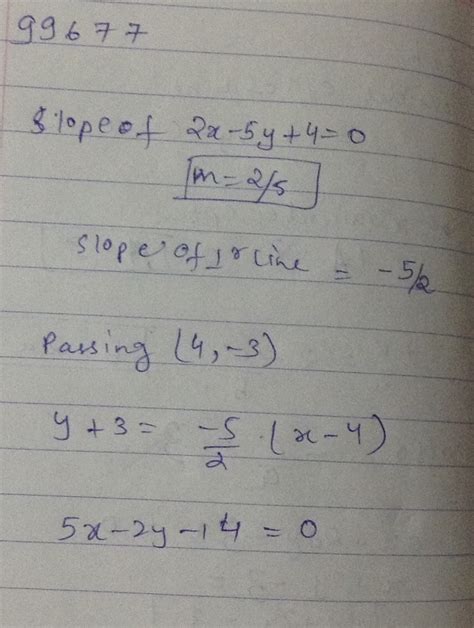 99677
Slope of 2x-5y+4=0
m=2/5
Slope of ⊥r line = -5/2
Passing (4,-3)
y+3= -5/2 · (x-4)
5x-2y-14=0